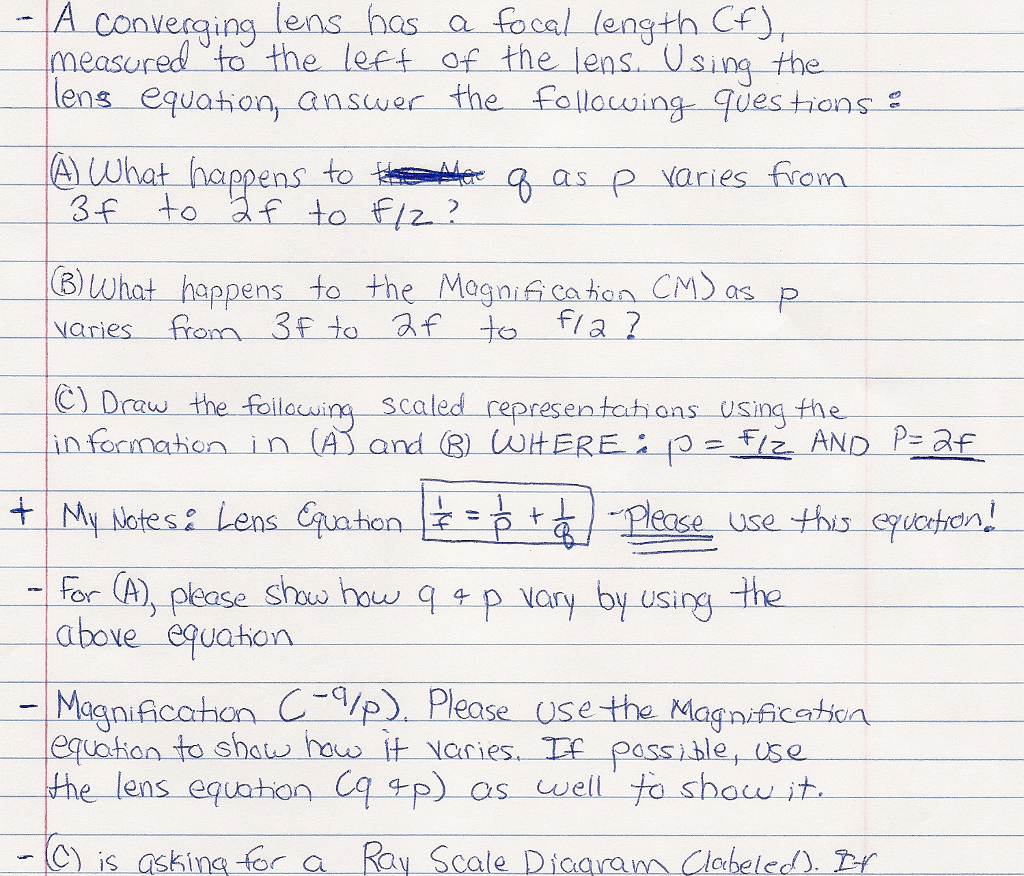 - A converging lens has a focal length (f),
measured to the left of the lens. Using the
lens equation, answer the following questions:
(A) What happens to q as p varies from
3f to 2f to f/2?
(B) What happens to the Magnification (M) as p
varies from 3f to 2f to f/2?
(C) Draw the following scaled representations using the
information in (A) and (B) WHERE: p = f/2 AND P= 2f
+ My Notes: Lens Equation 1/f = 1/p + 1/q - Please use this equation!
- For (A), please show how q & p vary by using the
above equation
- Magnification (-q/p). Please use the Magnification
equation to show how it varies. If possible, use
the lens equation (q & p) as well to show it.
- (C) is asking for a Ray Scale Diagram (labeled). If